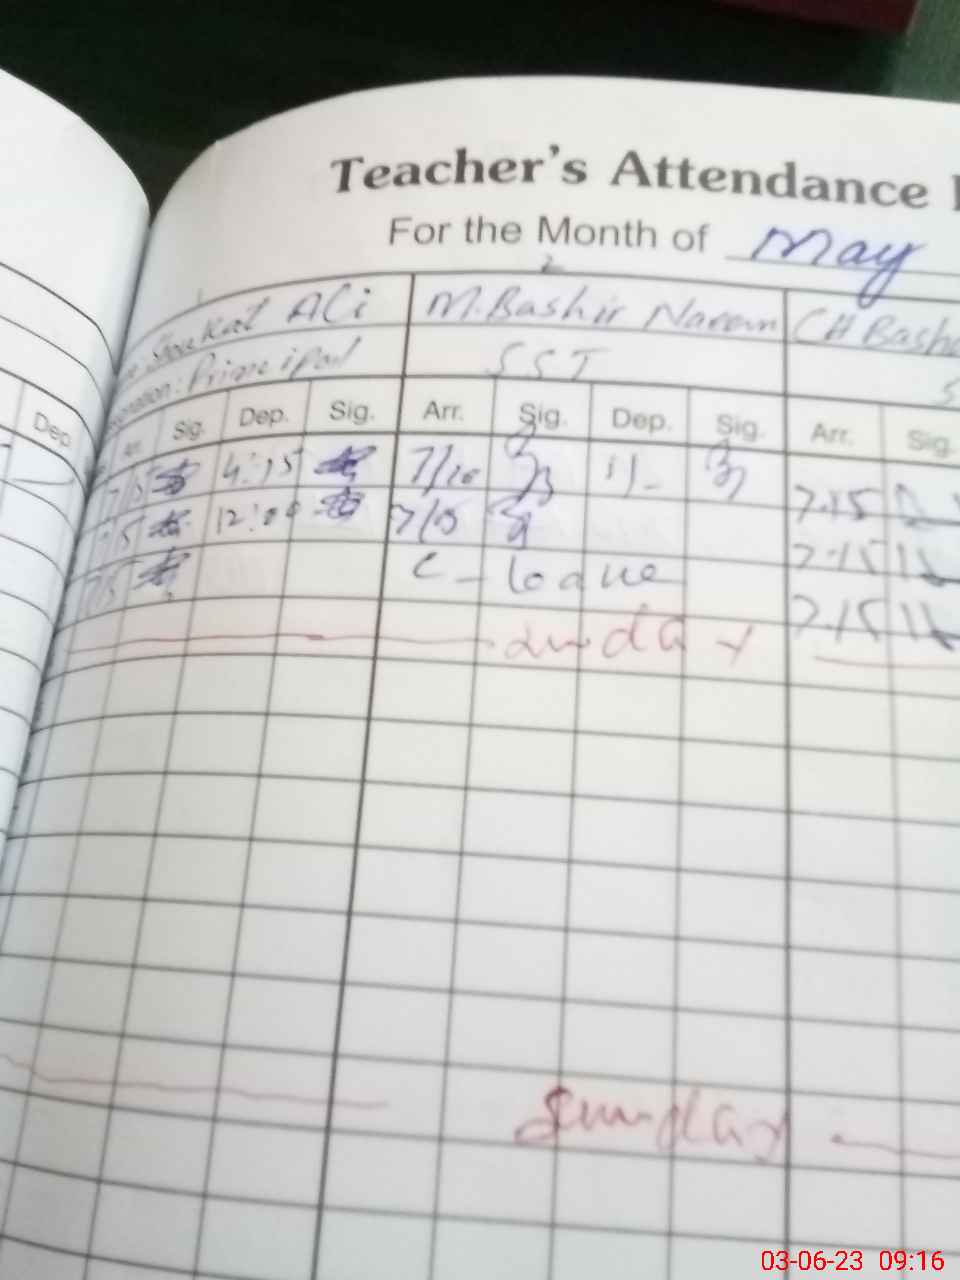 Teacher's Attendance
For the Month of May
2
Shoukat Ali M. Bashir Naeem CH Bash
Principal SST S
Dep. Arr. Sig. Dep. Sig. Arr. Sig. Dep. Sig. Arr. Sig.
7/15 4:15 7/10 11- 7.15
7/15 12:00 7/15 7.15
7/15 C-leave 7.15
Sunday
Sunday
03-06-23 09:16